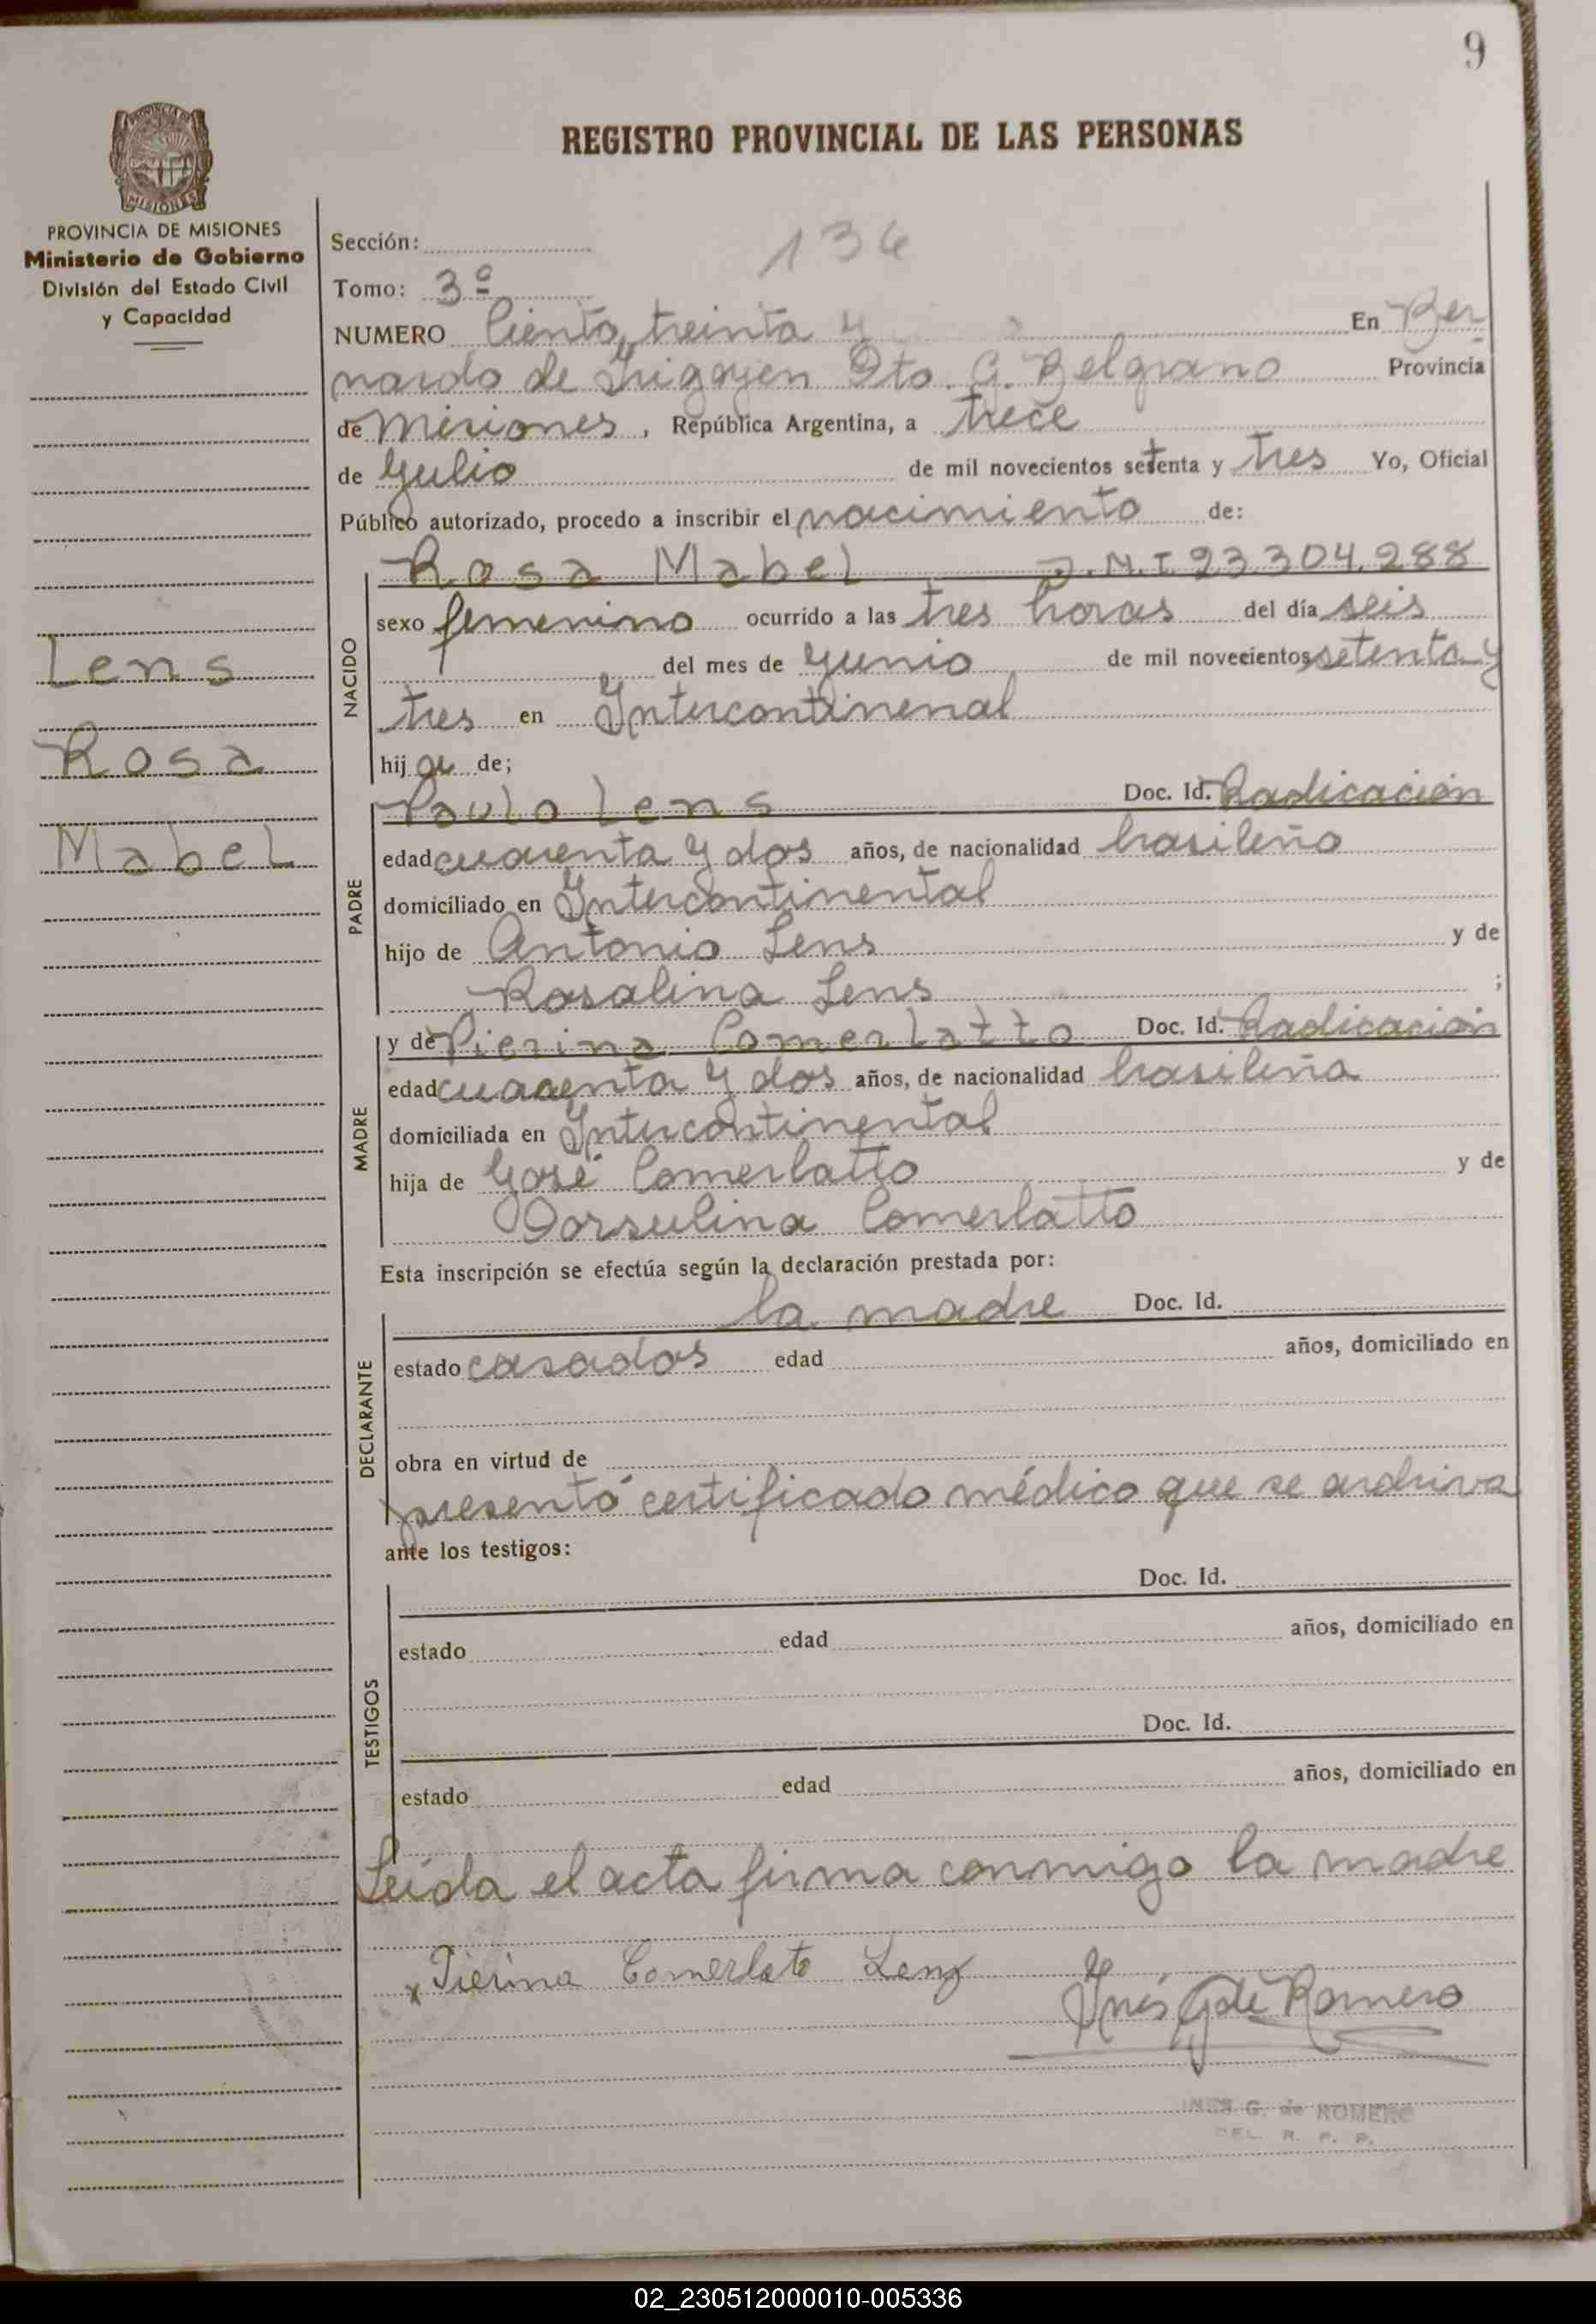 9
REGISTRO PROVINCIAL DE LAS PERSONAS
PROVINCIA DE MISIONES
Ministerio de Gobierno
División del Estado Civil
y Capacidad
Lens
Rosa
Mabel
Sección:
136
Tomo: 3º
NUMERO Ciento treinta y En Ber
nardo de Irigoyen Dto. G. Belgrano Provincia
de Misiones, República Argentina, a trece
de Julio de mil novecientos setenta y tres Yo, Oficial
Público autorizado, procedo a inscribir el nacimiento de:
Rosa Mabel D.N.I. 93.304.288
NACIDO
sexo femenino ocurrido a las tres horas del día seis
del mes de Junio de mil novecientos setenta y
tres en Intercontinenal
hija de;
PADRE
Paulo Lens Doc. Id. Radicación
edad cuarenta y dos años, de nacionalidad brasileño
domiciliado en Intercontinental
hijo de Antonio Lens y de
Rosalina Lens ;
MADRE
y de Pierina Comerlatto Doc. Id. Radicación
edad cuarenta y dos años, de nacionalidad brasileña
domiciliada en Intercontinental
hija de José Comerlatto y de
Dorsulina Comerlatto
Esta inscripción se efectúa según la declaración prestada por:
DECLARANTE
la madre Doc. Id.
estado casados edad años, domiciliado en
obra en virtud de
presentó certificado médico que se archiva
ante los testigos:
TESTIGOS
Doc. Id.
estado edad años, domiciliado en
Doc. Id.
estado edad años, domiciliado en
Leída el acta firma conmigo la madre
x Pierina Comerlato Lenz
Inés G de Romero
INES G. de ROMERO
DEL. R. P. P.
02_230512000010-005336